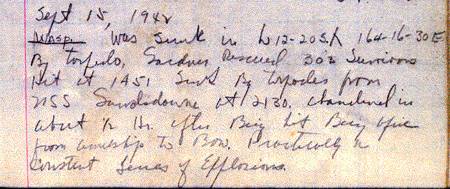 Sept 15, 1942
Wasp, was Sunk in L 12-20 S. λ 164-16-30E
By torpedo, Rescued 302 Survivors
Hit at 1451 Sunk By torpedoes from
USS Lansdowne at 2130. Abandoned in
about ½ Hr. after Being hit Being afire
from amidship to Bow. Practically a
Constant Series of Explosions.